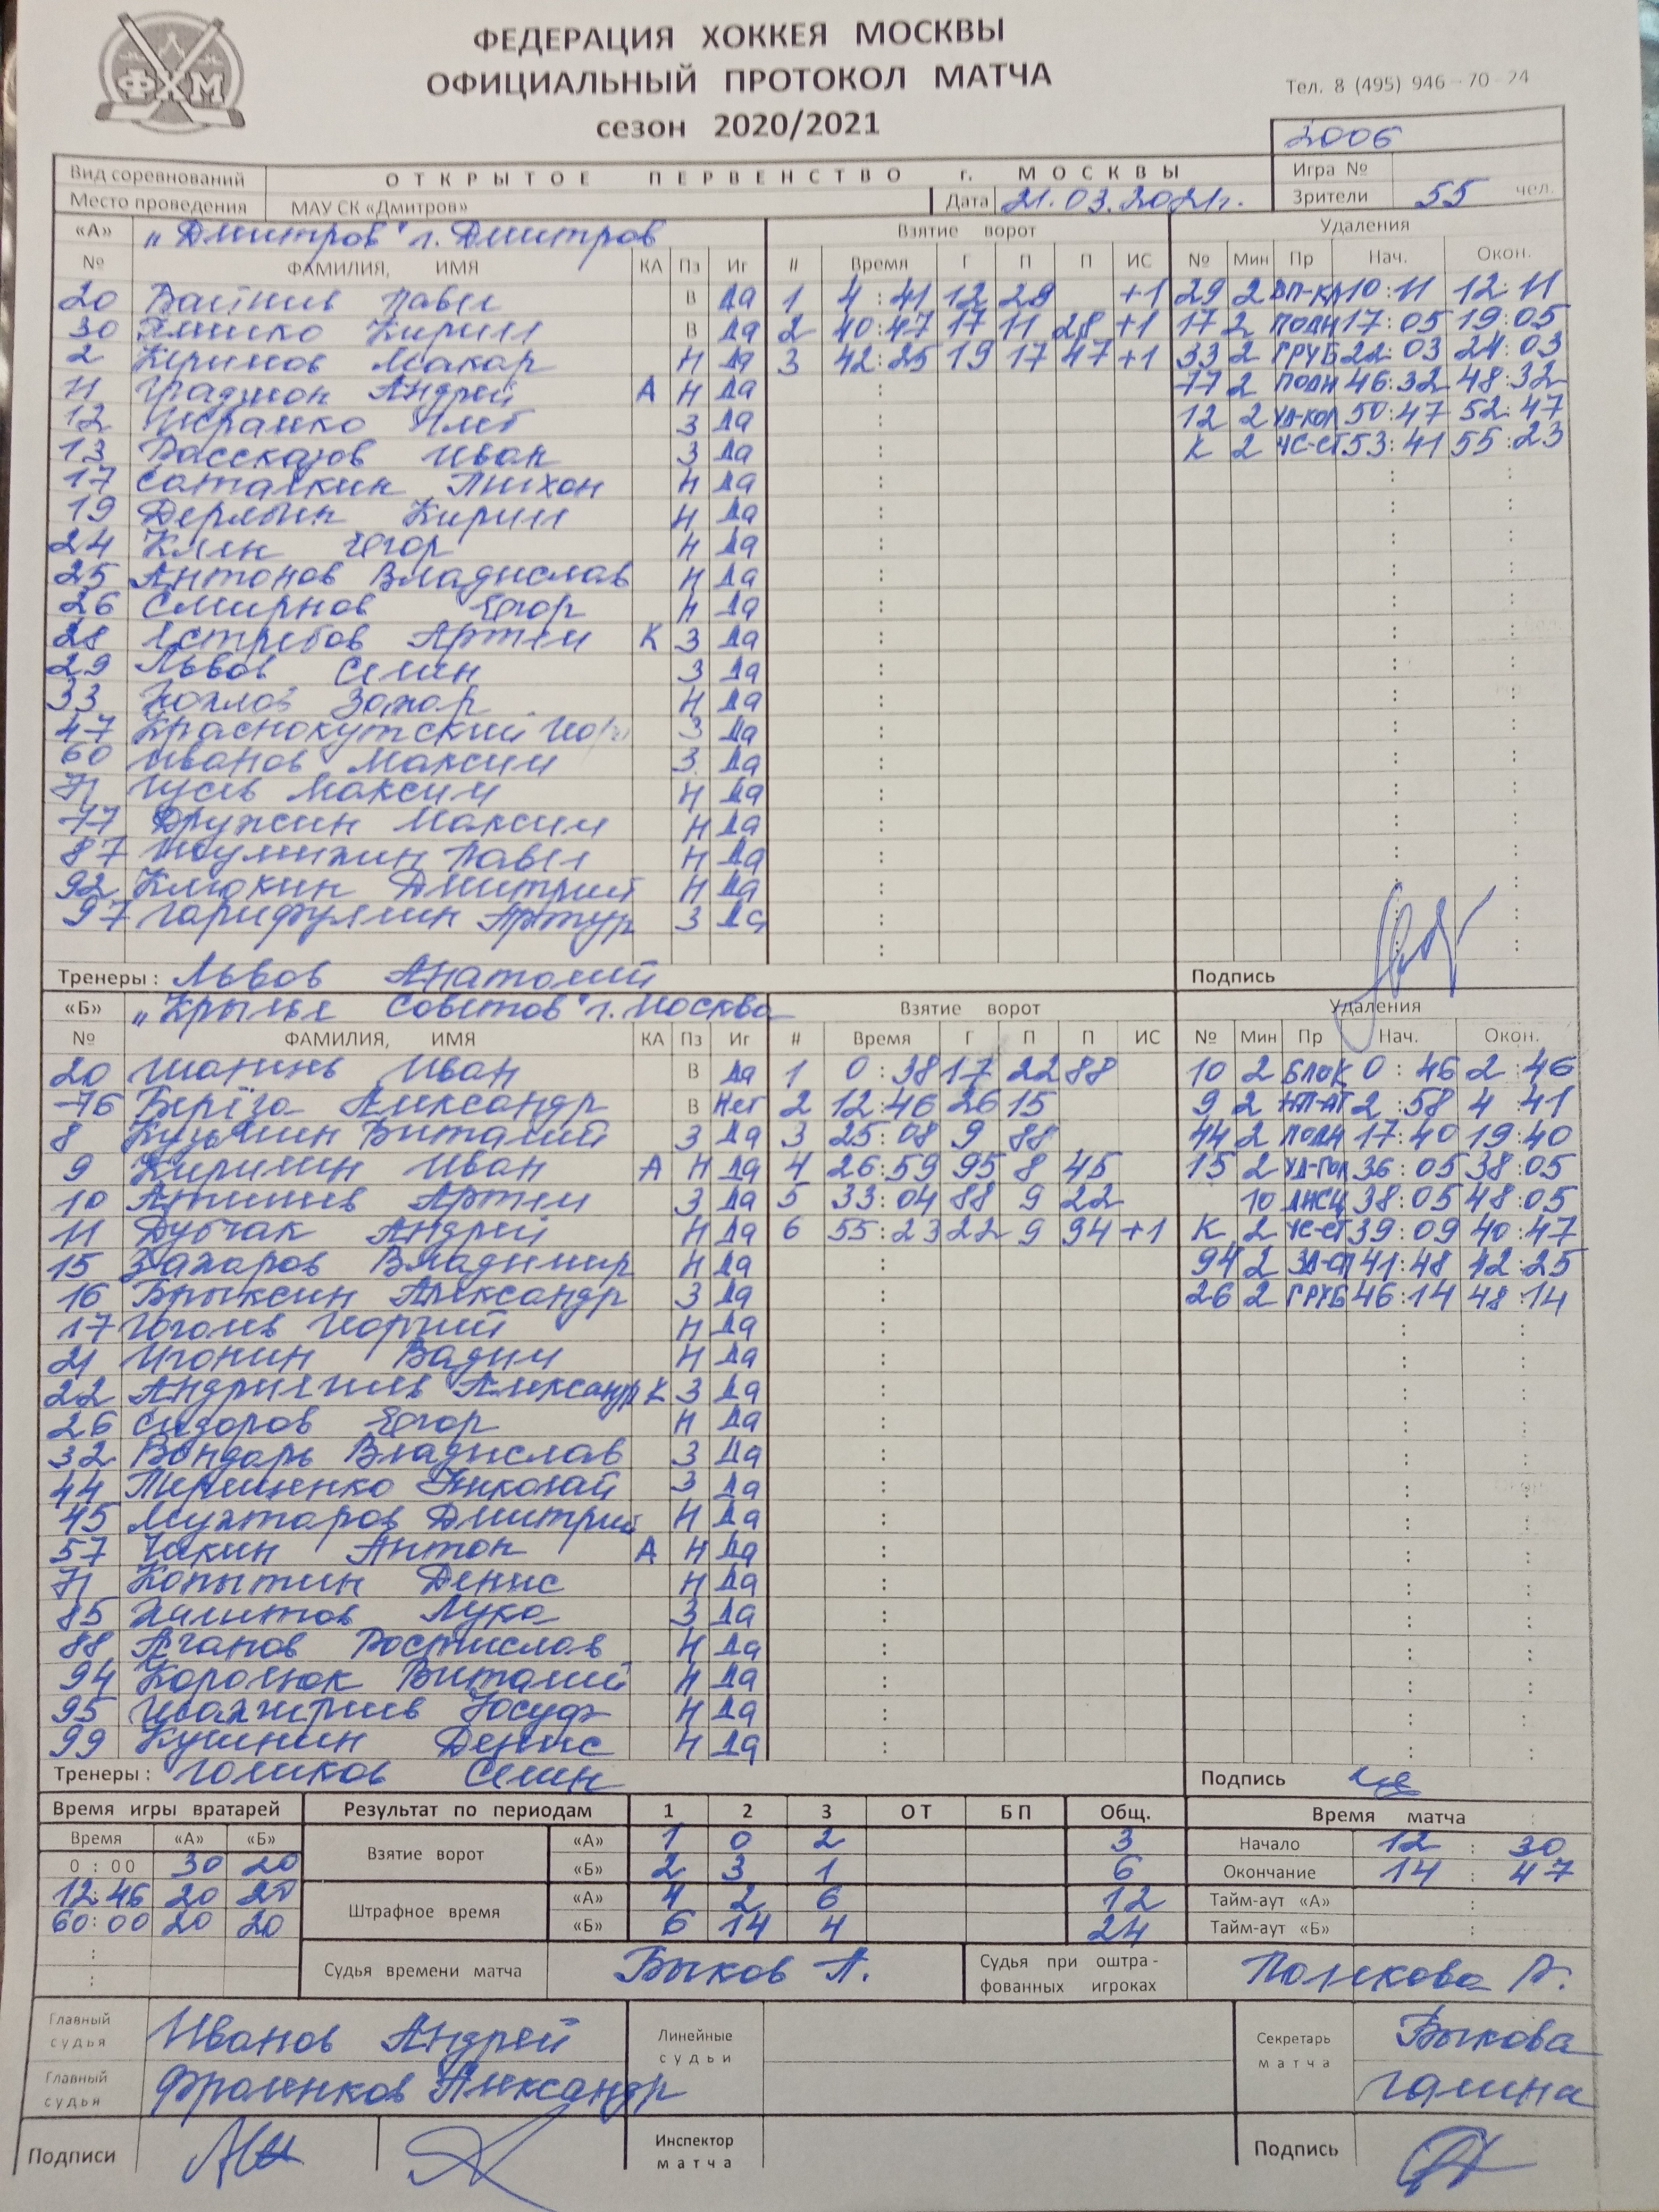 ФХМ
ФЕДЕРАЦИЯ ХОККЕЯ МОСКВЫ
ОФИЦИАЛЬНЫЙ ПРОТОКОЛ МАТЧА
Тел. 8 (495) 946-70-24
сезон 2020/2021
2006
Вид соревнований ОТКРЫТОЕ ПЕРВЕНСТВО г. МОСКВЫ Игра №
Место проведения МАУ СК «Дмитров» Дата 21.03.2021г. Зрители 55 чел.
«А» "Дмитров" г. Дмитров Взятие ворот Удаления
№ ФАМИЛИЯ, ИМЯ КА Пз Иг # Время Г П П ИС № Мин Пр Нач. Окон.
20 Павел В Да 1 4:41 12 29 +1 29 2 10:11 12:11
30 Кирилл В Да 2 40:47 17 11 28 +1 17 2 ПОДН 17:05 19:05
2 Керимов Макар Н Да 3 42:25 19 17 47 +1 33 2 ГРУБ 22:03 24:03
11 Андрей А Н Да : 77 2 ПОДН 46:32 48:32
12 Глеб З Да : 12 2 УД-КОЛ 50:47 52:47
13 Рассказов Иван З Да : К 2 ЧС-СТ 53:41 55:23
17 Саталкин Тихон Н Да : : :
19 Дерябин Кирилл Н Да : : :
24 Клен Егор Н Да : : :
25 Антонов Владислав Н Да : : :
26 Смирнов Егор Н Да : : :
28 Ястребов Артем К З Да : : :
29 Львов Семен З Да : : :
33 Козлов Захар Н Да : : :
47 Краснокутский З Да : : :
60 Иванов Максим З Да : : :
71 Гусев Максим Н Да : : :
77 Дружин Максим Н Да : : :
87 Павел Н Да : : :
92 Клюкин Дмитрий Н Да : : :
97 Гарифуллин Артур З Да : : :
: : :
Тренеры: Львов Анатолий Подпись
«Б» "Крылья Советов" г. Москва Взятие ворот Удаления
№ ФАМИЛИЯ, ИМЯ КА Пз Иг # Время Г П П ИС № Мин Пр Нач. Окон.
20 Шанинь Иван В Да 1 0:38 17 22 88 10 2 БЛОК 0:46 2:46
76 Берёза Александр В Нет 2 12:46 26 15 9 2 2:58 4:41
8 Кузьмин Виталий З Да 3 25:08 9 88 44 2 ПОДН 17:40 19:40
9 Кирилин Иван А Н Да 4 26:59 95 8 45 15 2 36:05 38:05
10 Артем З Да 5 33:04 88 9 22 10 ДИСЦ 38:05 48:05
11 Дубчак Андрей Н Да 6 55:23 22 9 94 +1 К 2 ЧС-СТ 39:09 40:47
15 Захаров Владимир Н Да : 94 2 41:48 42:25
16 Брыксин Александр З Да : 26 2 ГРУБ 46:14 48:14
17 Гоголев Георгий Н Да : : :
21 Игонин Вадим Н Да : : :
22 Александр К З Да : : :
26 Сидоров Егор Н Да : : :
32 Бондарь Владислав З Да : : :
44 Терещенко Николай З Да : : :
45 Мухтаров Дмитрий Н Да : : :
57 Чикин Антон А Н Да : : :
71 Копытин Денис Н Да : : :
85 Халитов Лука З Да : : :
88 Агапов Ростислав Н Да : : :
94 Королюк Виталий Н Да : : :
95 Юсуф Н Да : : :
99 Кушнин Денис Н Да : : :
Тренеры: Голиков Семен Подпись
Время игры вратарей Результат по периодам 1 2 3 ОТ БП Общ. Время матча
Время «А» «Б» Взятие ворот «А» 1 0 2 3 Начало 12:30
0:00 30 20 «Б» 2 3 1 6 Окончание 14:47
12:46 20 20 Штрафное время «А» 4 2 6 12 Тайм-аут «А» :
60:00 20 20 «Б» 6 14 4 24 Тайм-аут «Б» :
:
: Судья времени матча Быков А. Судья при оштрафованных игроках Полякова А.
Главный судья Иванов Андрей Линейные судьи Секретарь матча Быкова
Главный судья Фроленков Александр Галина
Подписи Инспектор матча Подпись